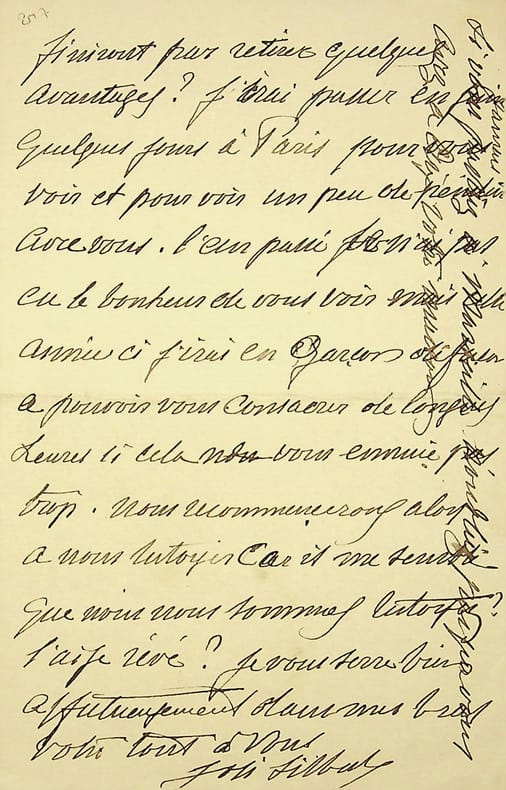 finiront par retirer quelques
avantages? J'irai passer en juin
quelques jours à Paris pour vous
voir et pour voir un peu de peinture
avec vous. l'an passé je n'ai pas
eu le bonheur de vous voir mais cette
année ci j'irai en Garçon de façon
a pouvoir vous consacrer de longues
heures si cela ne vous ennuie pas
trop. nous recommencerons alors
a nous tutoyer Car il me semble
que nous nous sommes tutoyés?
l'ai je rêvé? je vous serre bien
affectueusement dans mes bras
votre tout à vous
Si vous passez à Marseille n'oubliez pas
jamais
votre maison